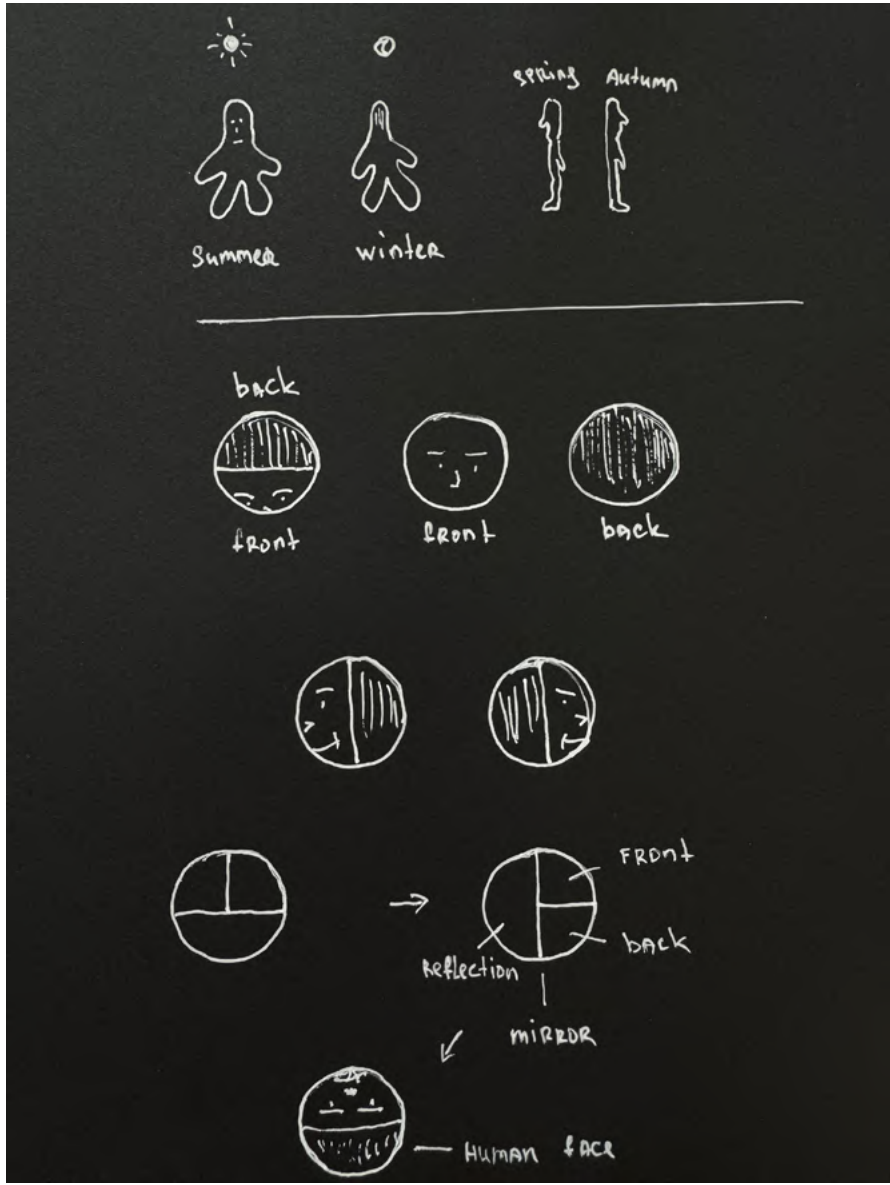 spring Autumn
summer winter
back
front front back
FRont
back
Reflection
miRROR
Human face